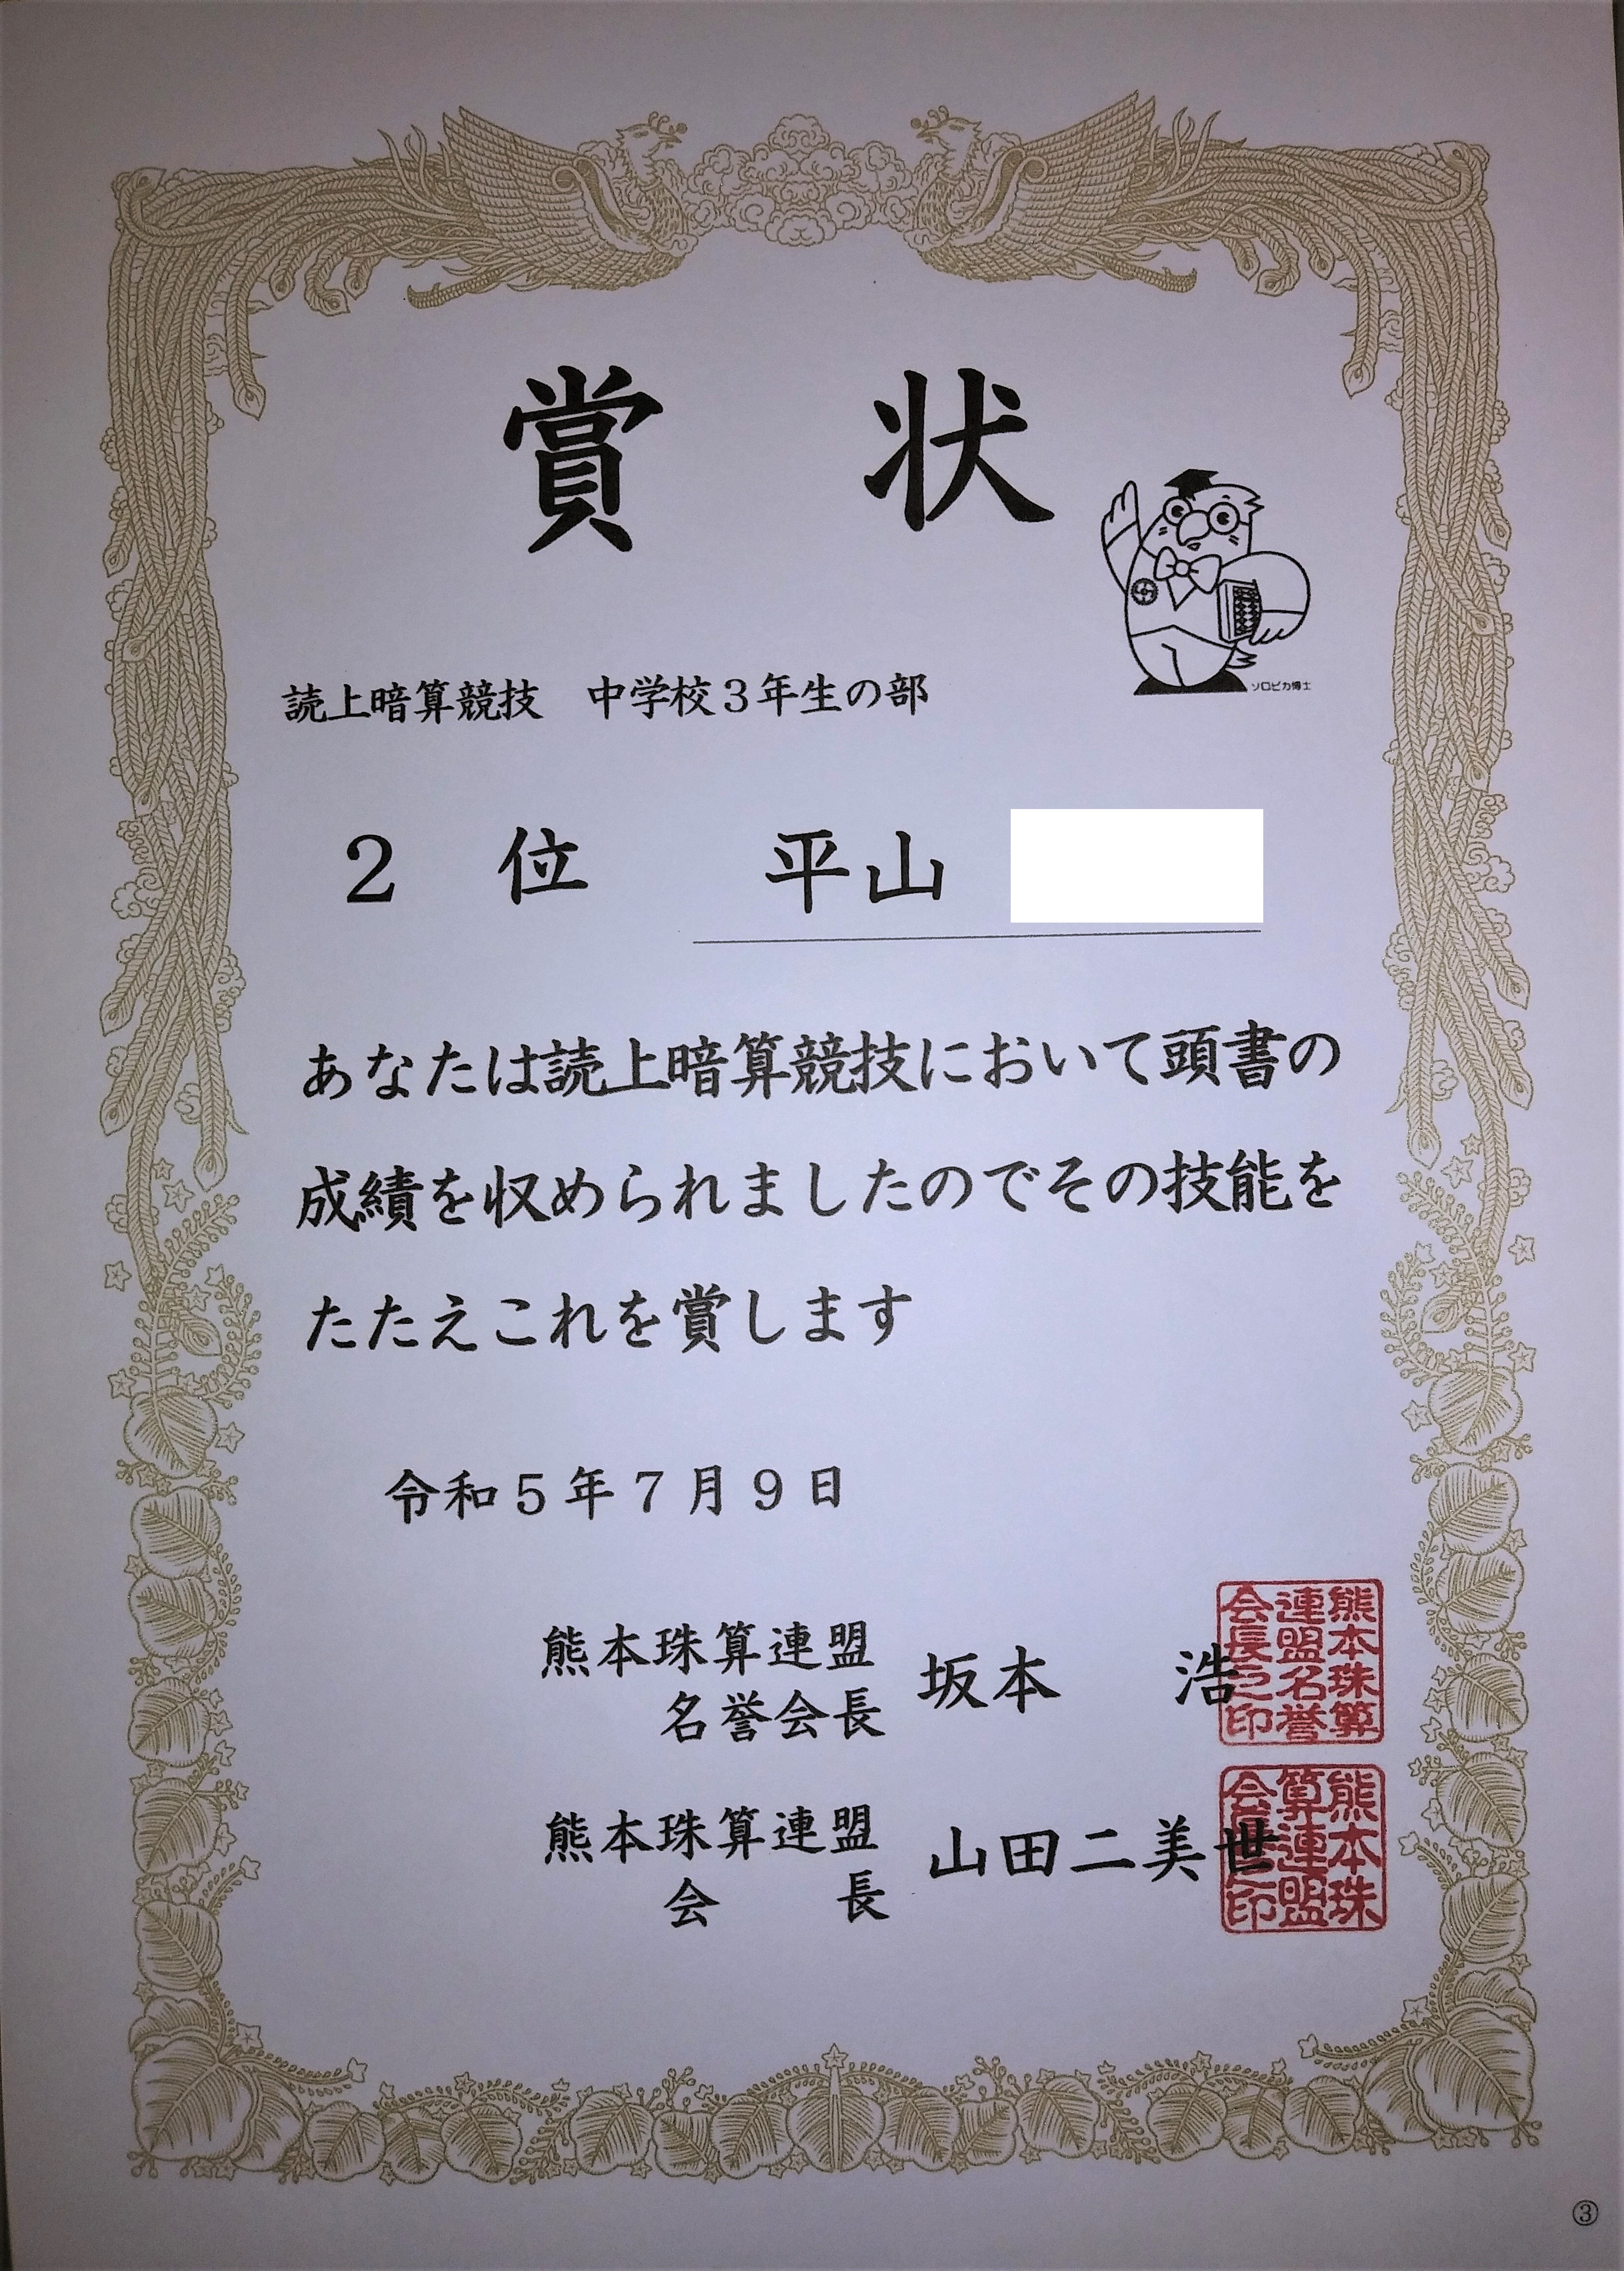 賞　状
ソロピカ博士
読上暗算競技　中学校３年生の部
２　位　　平山
あなたは読上暗算競技において頭書の
成績を収められましたのでその技能を
たたえこれを賞します
令和５年７月９日
熊本珠算連盟
名誉会長　坂本　浩
熊本珠算連盟名誉会長之印
熊本珠算連盟
会　長　山田二美世
熊本珠算連盟会長之印
③